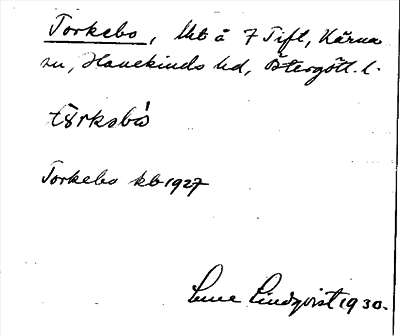 Torkebo, lht å 7 Tift, Kärna
sn, Hanekinds hd, Östergötl. l.
tårkəbò
Torkebo kb 1927
Sune Lindqvist 1930.